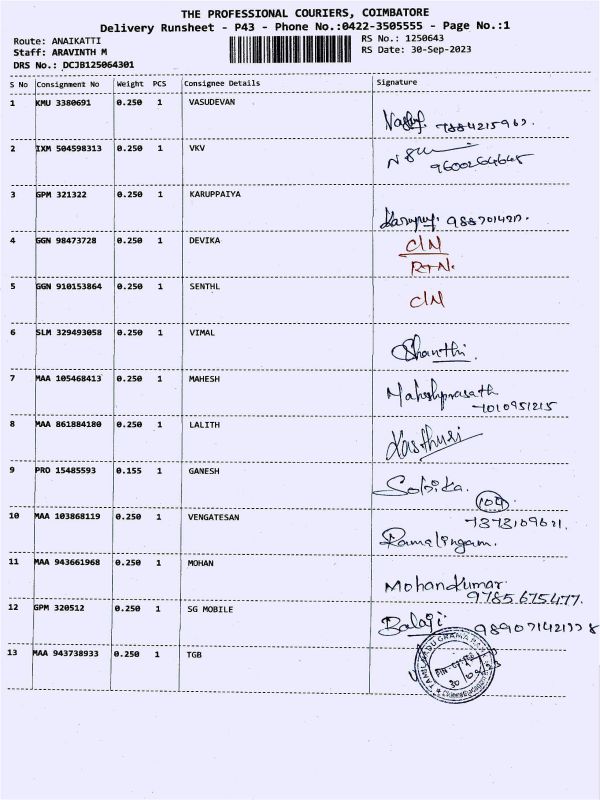 THE PROFESSIONAL COURIERS, COIMBATORE
Delivery Runsheet - P43 - Phone No.:0422-3505555 - Page No.:1
Route: ANAIKATTI RS No.: 1250643
Staff: ARAVINTH M RS Date: 30-Sep-2023
DRS No.: DCJB125064301
S No Consignment No Weight PCS Consignee Details Signature
1 KMU 3380691 0.250 1 VASUDEVAN
2 IXM 504598313 0.250 1 VKV
9600264645
3 GPM 321322 0.250 1 KARUPPAIYA
4 GGN 98473728 0.250 1 DEVIKA C/N
RTN.
5 GGN 910153864 0.250 1 SENTHL C/N
6 SLM 329493058 0.250 1 VIMAL
Shanthi.
7 MAA 105468413 0.250 1 MAHESH
Maheshprasath
7010951215
8 MAA 861884180 0.250 1 LALITH
Kasthuri
9 PRO 15485593 0.155 1 GANESH
Sobika.
10 MAA 103868119 0.250 1 VENGATESAN
Ramalingam.
11 MAA 943661968 0.250 1 MOHAN
Mohankumar
9785675477.
12 GPM 320512 0.250 1 SG MOBILE
Balaji
13 MAA 943738933 0.250 1 TGB
TAMIL NADU GRAMA